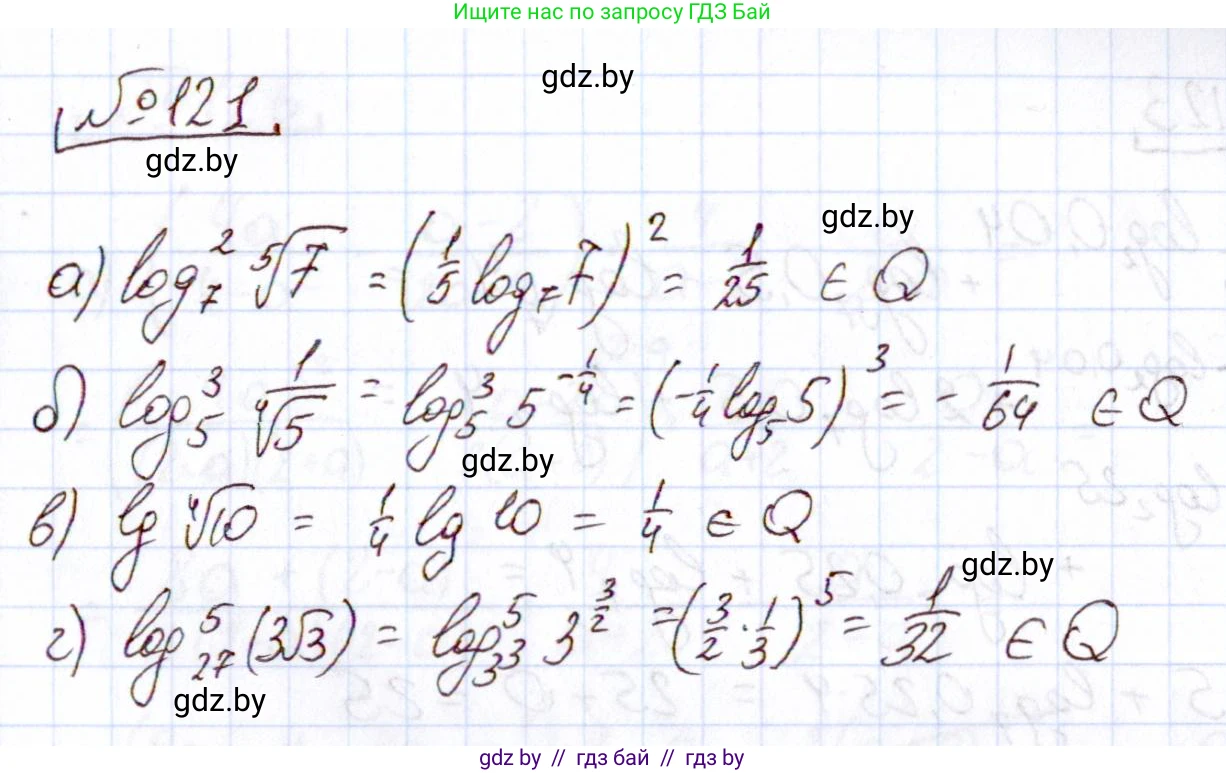 Ищите нас по запросу ГДЗ Бай
gdz.by
№121
gdz.by
gdz.by
а) log₇² ⁵√7 = (1/5 log₇ 7)² = 1/25 ∈ Q
б) log₅³ 1/⁴√5 = log₅³ 5^(-1/4) = (-1/4 log₅ 5)³ = - 1/64 ∈ Q
gdz.by
в) lg ⁴√10 = 1/4 lg 10 = 1/4 ∈ Q
gdz.by
г) log₂₇⁵ (3√3) = log⁵_(3³) 3^(3/2) = (3/2 · 1/3)⁵ = 1/32 ∈ Q
gdz.by
gdz.by // гдз бай // гдз by